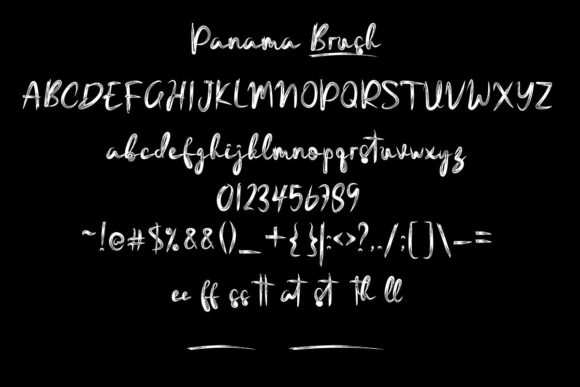 Panama Brush
ABCDEFGHIJKLMNOPQRSTUVWXYZ
abcdefghijklmnopqrstuvwxyz
0123456789
~!@#$%&&()_+{}|:<>?,./;[]\-=
ee ff ss tt at st th ll